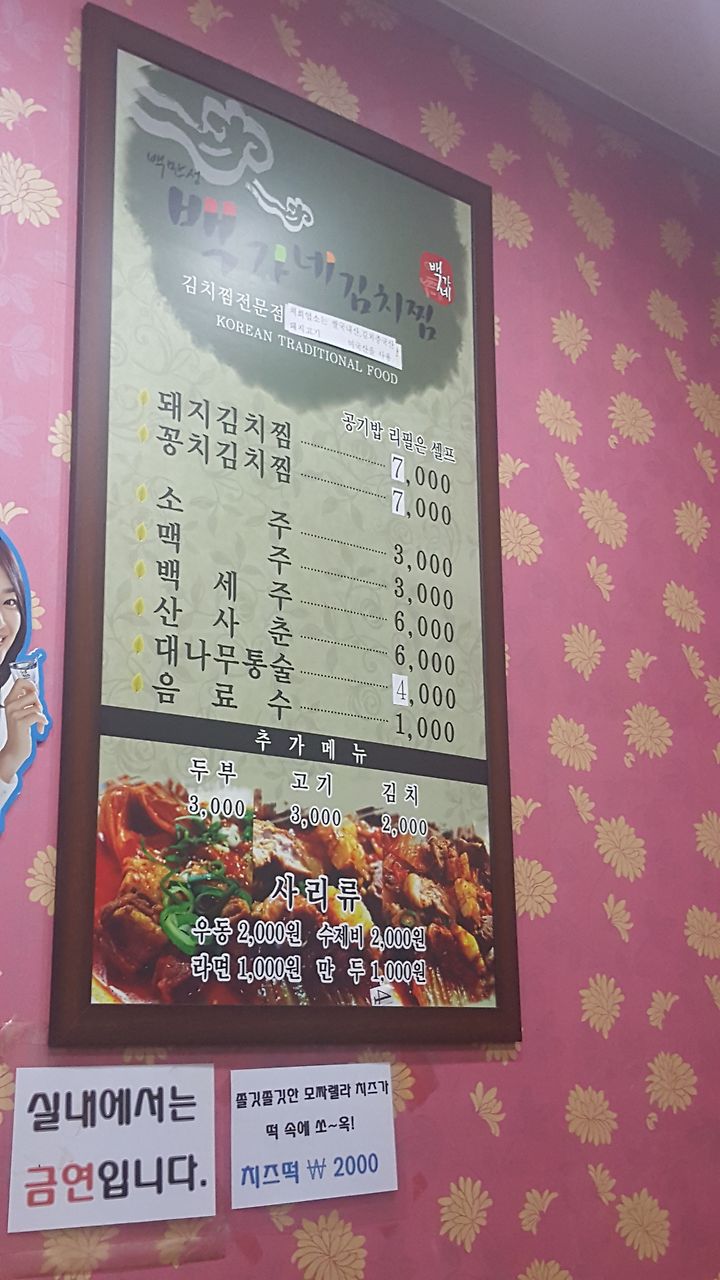 백만성
백가네김치찜
백가네
김치찜전문점
저희업소는 쌀국내산,김치중국산
돼지고기 미국산을 사용
KOREAN TRADITIONAL FOOD
공기밥 리필은 셀프
돼지김치찜 7,000
꽁치김치찜 7,000
소주 3,000
맥주 3,000
백세주 6,000
산사춘 6,000
대나무통술 4,000
음료수 1,000
추가메뉴
두부 고기 김치
3,000 3,000 2,000
사리류
우동 2,000원 수제비 2,000원
라면 1,000원 만두 1,000원
4
실내에서는
금연입니다.
쫄깃쫄깃한 모짜렐라 치즈가
떡 속에 쏘~옥!
치즈떡 ₩ 2000